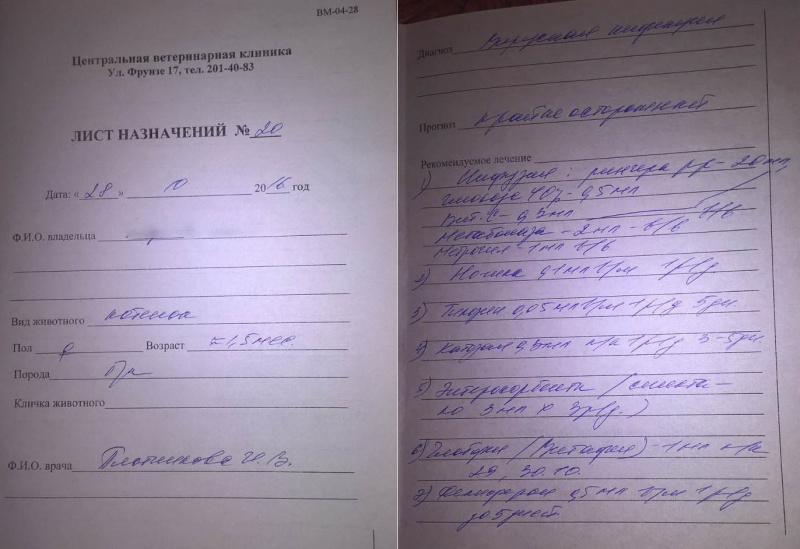 ВМ-04-28
Центральная ветеринарная клиника
Ул. Фрунзе 17, тел. 201-40-83
ЛИСТ НАЗНАЧЕНИЙ № 20
Дата: « 28 » 10 2016 год
Ф.И.О. владельца
Вид животного котенок
Пол Возраст ≈1,5 мес.
Порода
Кличка животного
Ф.И.О. врача Плотникова И.В.
Диагноз Вирусная инфекция
Прогноз крайне осторожный
Рекомендуемое лечение
1) Инфузия: рингера р-р - 20 мл,
глюкоза 40% - 0,5 мл
Вит. С - 0,3 мл в/в
- 2 мл - в/в
Метрогил - 1 мл в/в
2) Но-шпа 0,1 мл в/м 1 р/д.
3) 0,05 мл в/м 1 р/д 5 дн.
4) Катозал 0,3 мл п/к 1 р/д 3-5 дн.
5) Энтеросорбенты (смекта -
по 3 мл х 3 р/д.)
6) Глобфел (Витафел) - 1 мл п/к
29, 30.10.
7) 0,5 мл в/м 1 р/д
до 5 дней.